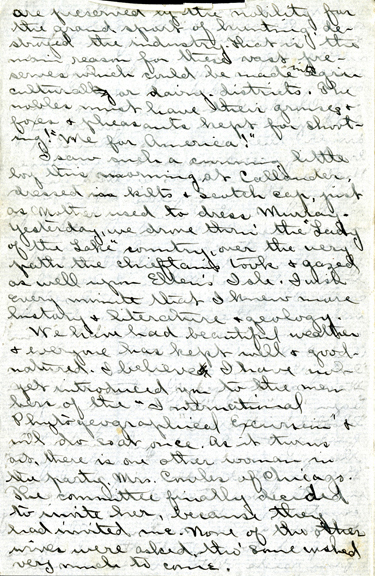 are preserved by the nobility for
the grand sport of hunting, de-
stroyed the industry. That is the
main reason for these vast pre-
serves which could be made into agri
cultural or dairy districts. The
nobles must have their grouse &
foxes & pheasants kept for shoot-
ing! "Me for America!"
I saw such a cunning little
boy this morning at Callander,
dressed in kilts & scotch cap, just
as Mother used to dress Murray.
Yesterday, we drove thru' the "Lady
of the Lake" country, over the very
path the chieftains took & gazed
as well upon Ellen's Isle. I wish
every minute that I knew more
history & literature & geology.
We have had beautiful weather
& everyone has kept well & good-
natured. I believe I have not
yet introduced you to the mem
bers of the "International
Phytogeographical Excursion" &
will do so at once. As it turns
out, there is one other woman in
the party, Mrs. Cowles of Chicago.
The committee finally decided
to invite her, because they
had invited me. None of the other
wives were asked, tho' some wished
very much to come.